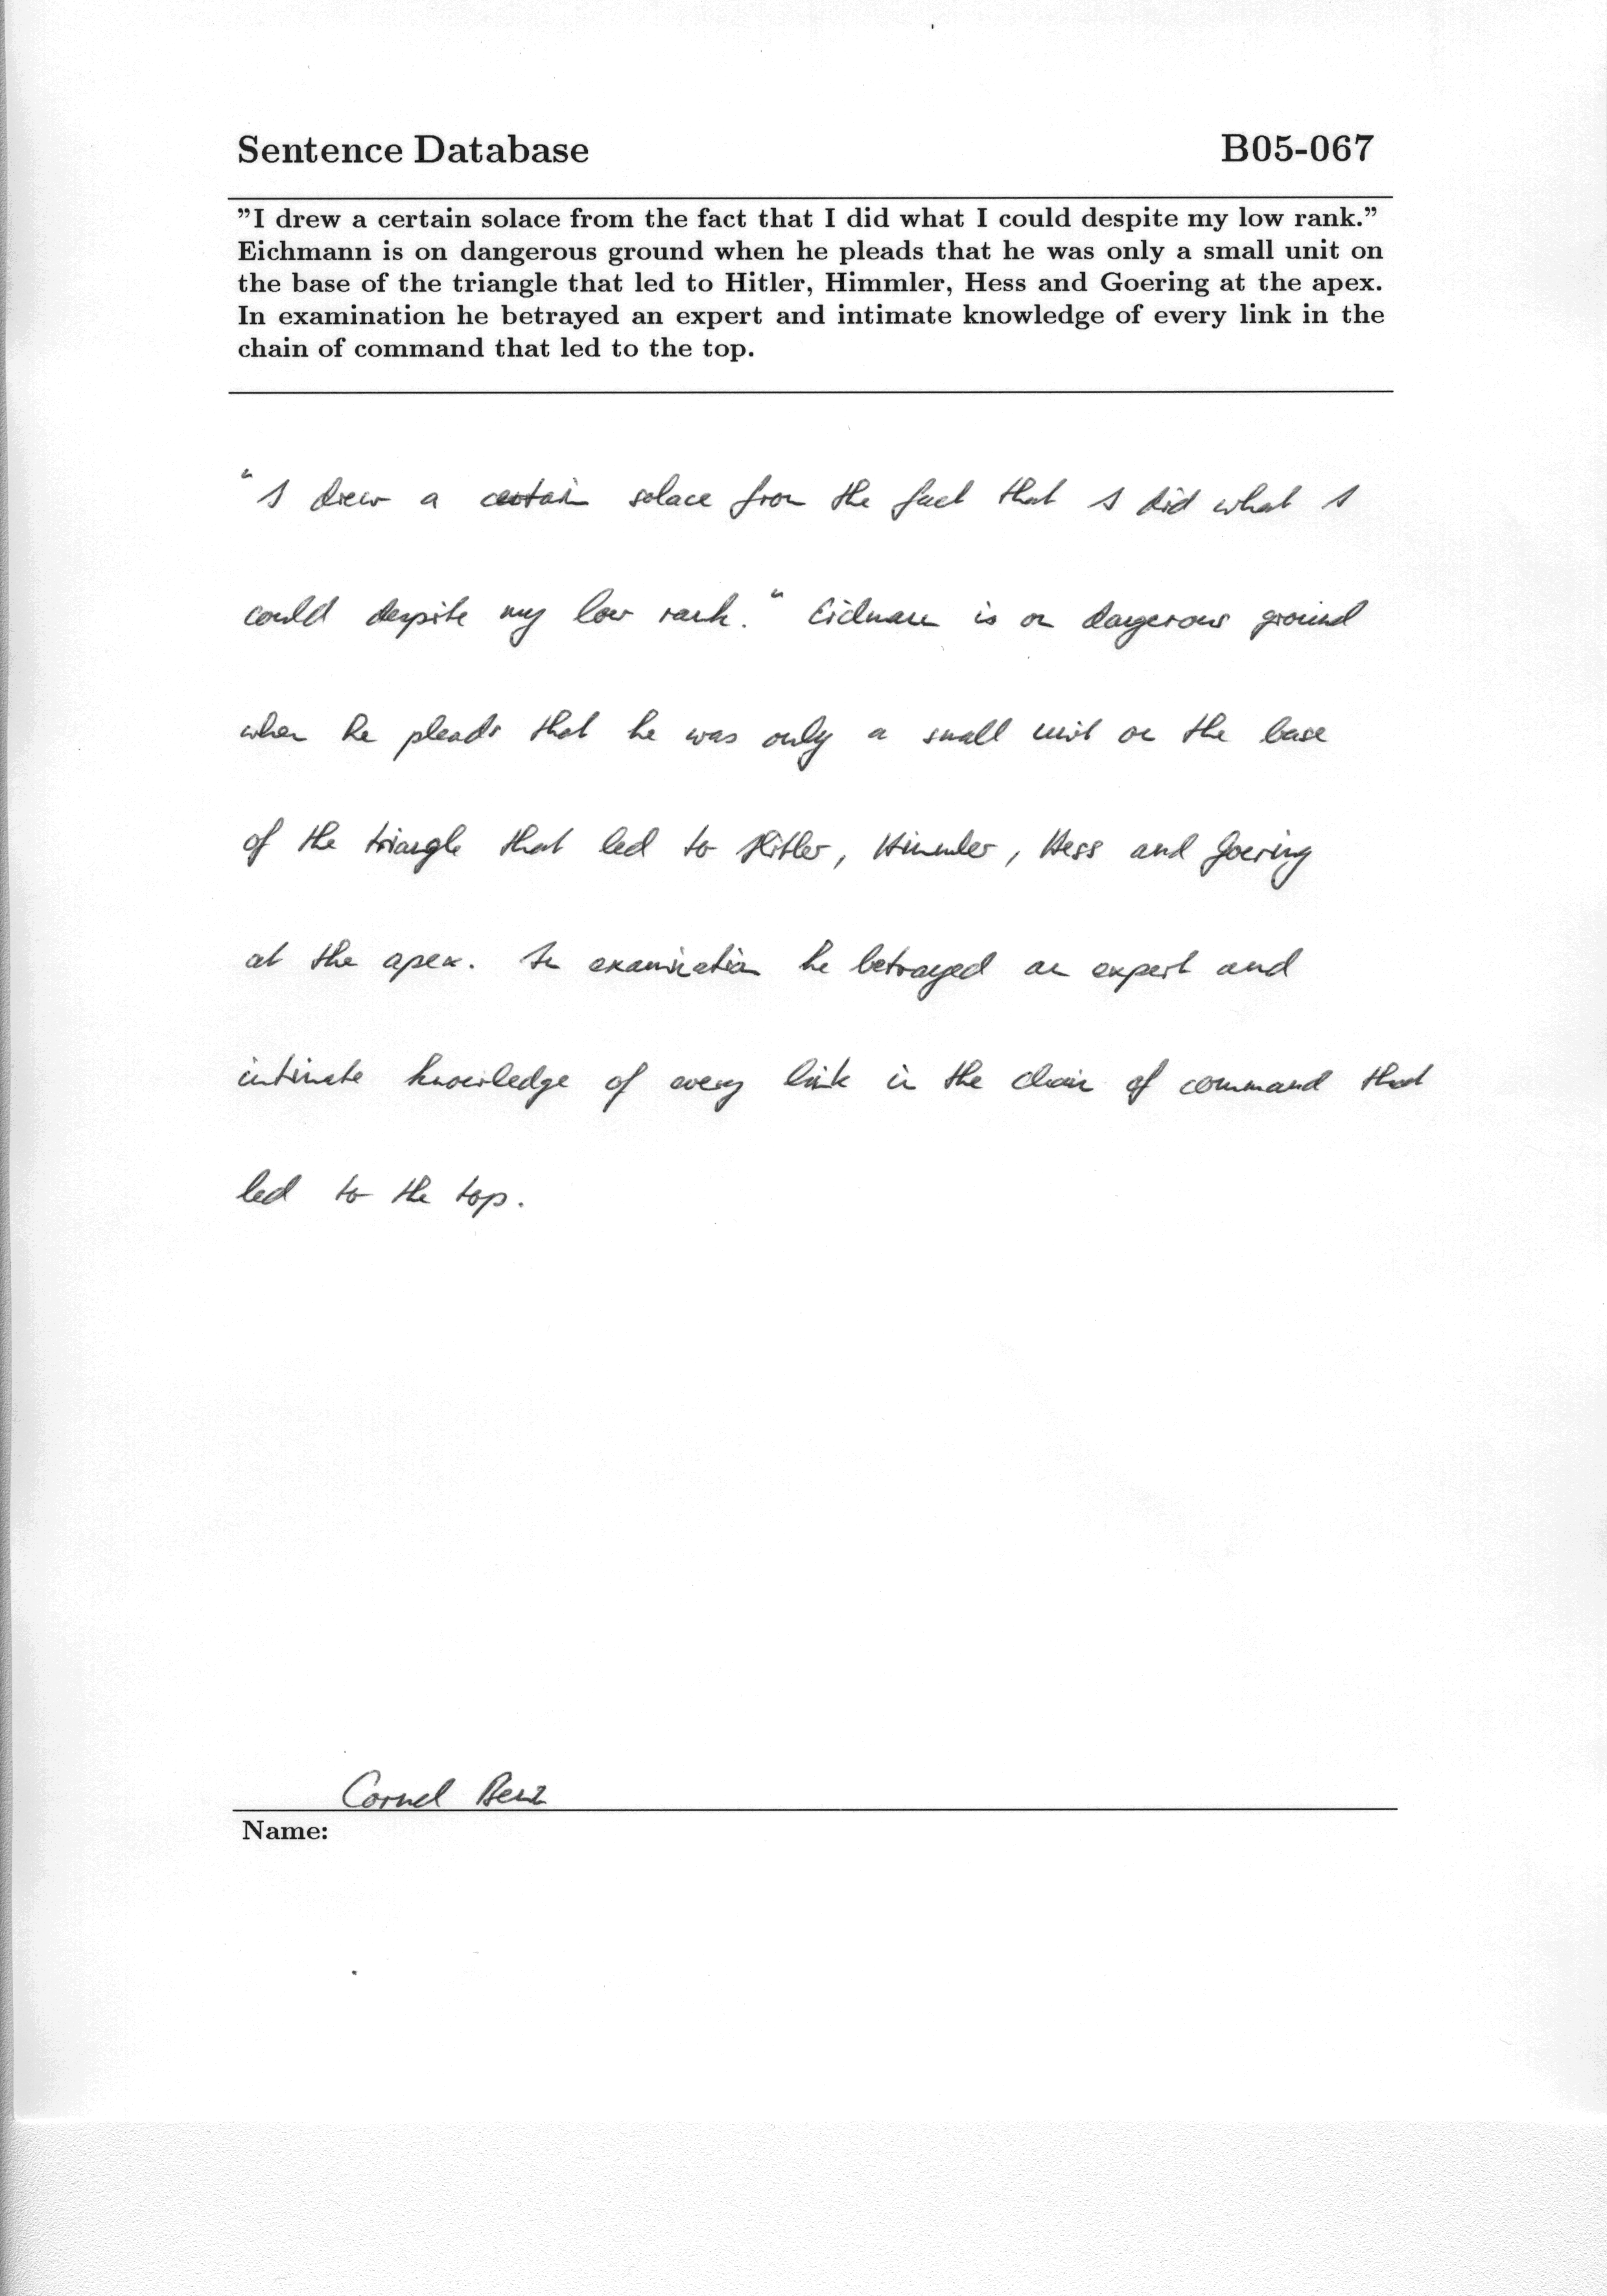 Sentence Database B05-067
”I drew a certain solace from the fact that I did what I could despite my low rank.”
Eichmann is on dangerous ground when he pleads that he was only a small unit on
the base of the triangle that led to Hitler, Himmler, Hess and Goering at the apex.
In examination he betrayed an expert and intimate knowledge of every link in the
chain of command that led to the top.
"I drew a certain solace from the fact that I did what I
could despite my low rank." Eichmann is on dangerous ground
when he pleads that he was only a small unit on the base
of the triangle that led to Hitler, Himmler, Hess and Goering
at the apex. In examination he betrayed an expert and
intimate knowledge of every link in the chain of command that
led to the top.
Cornel Benz
Name: